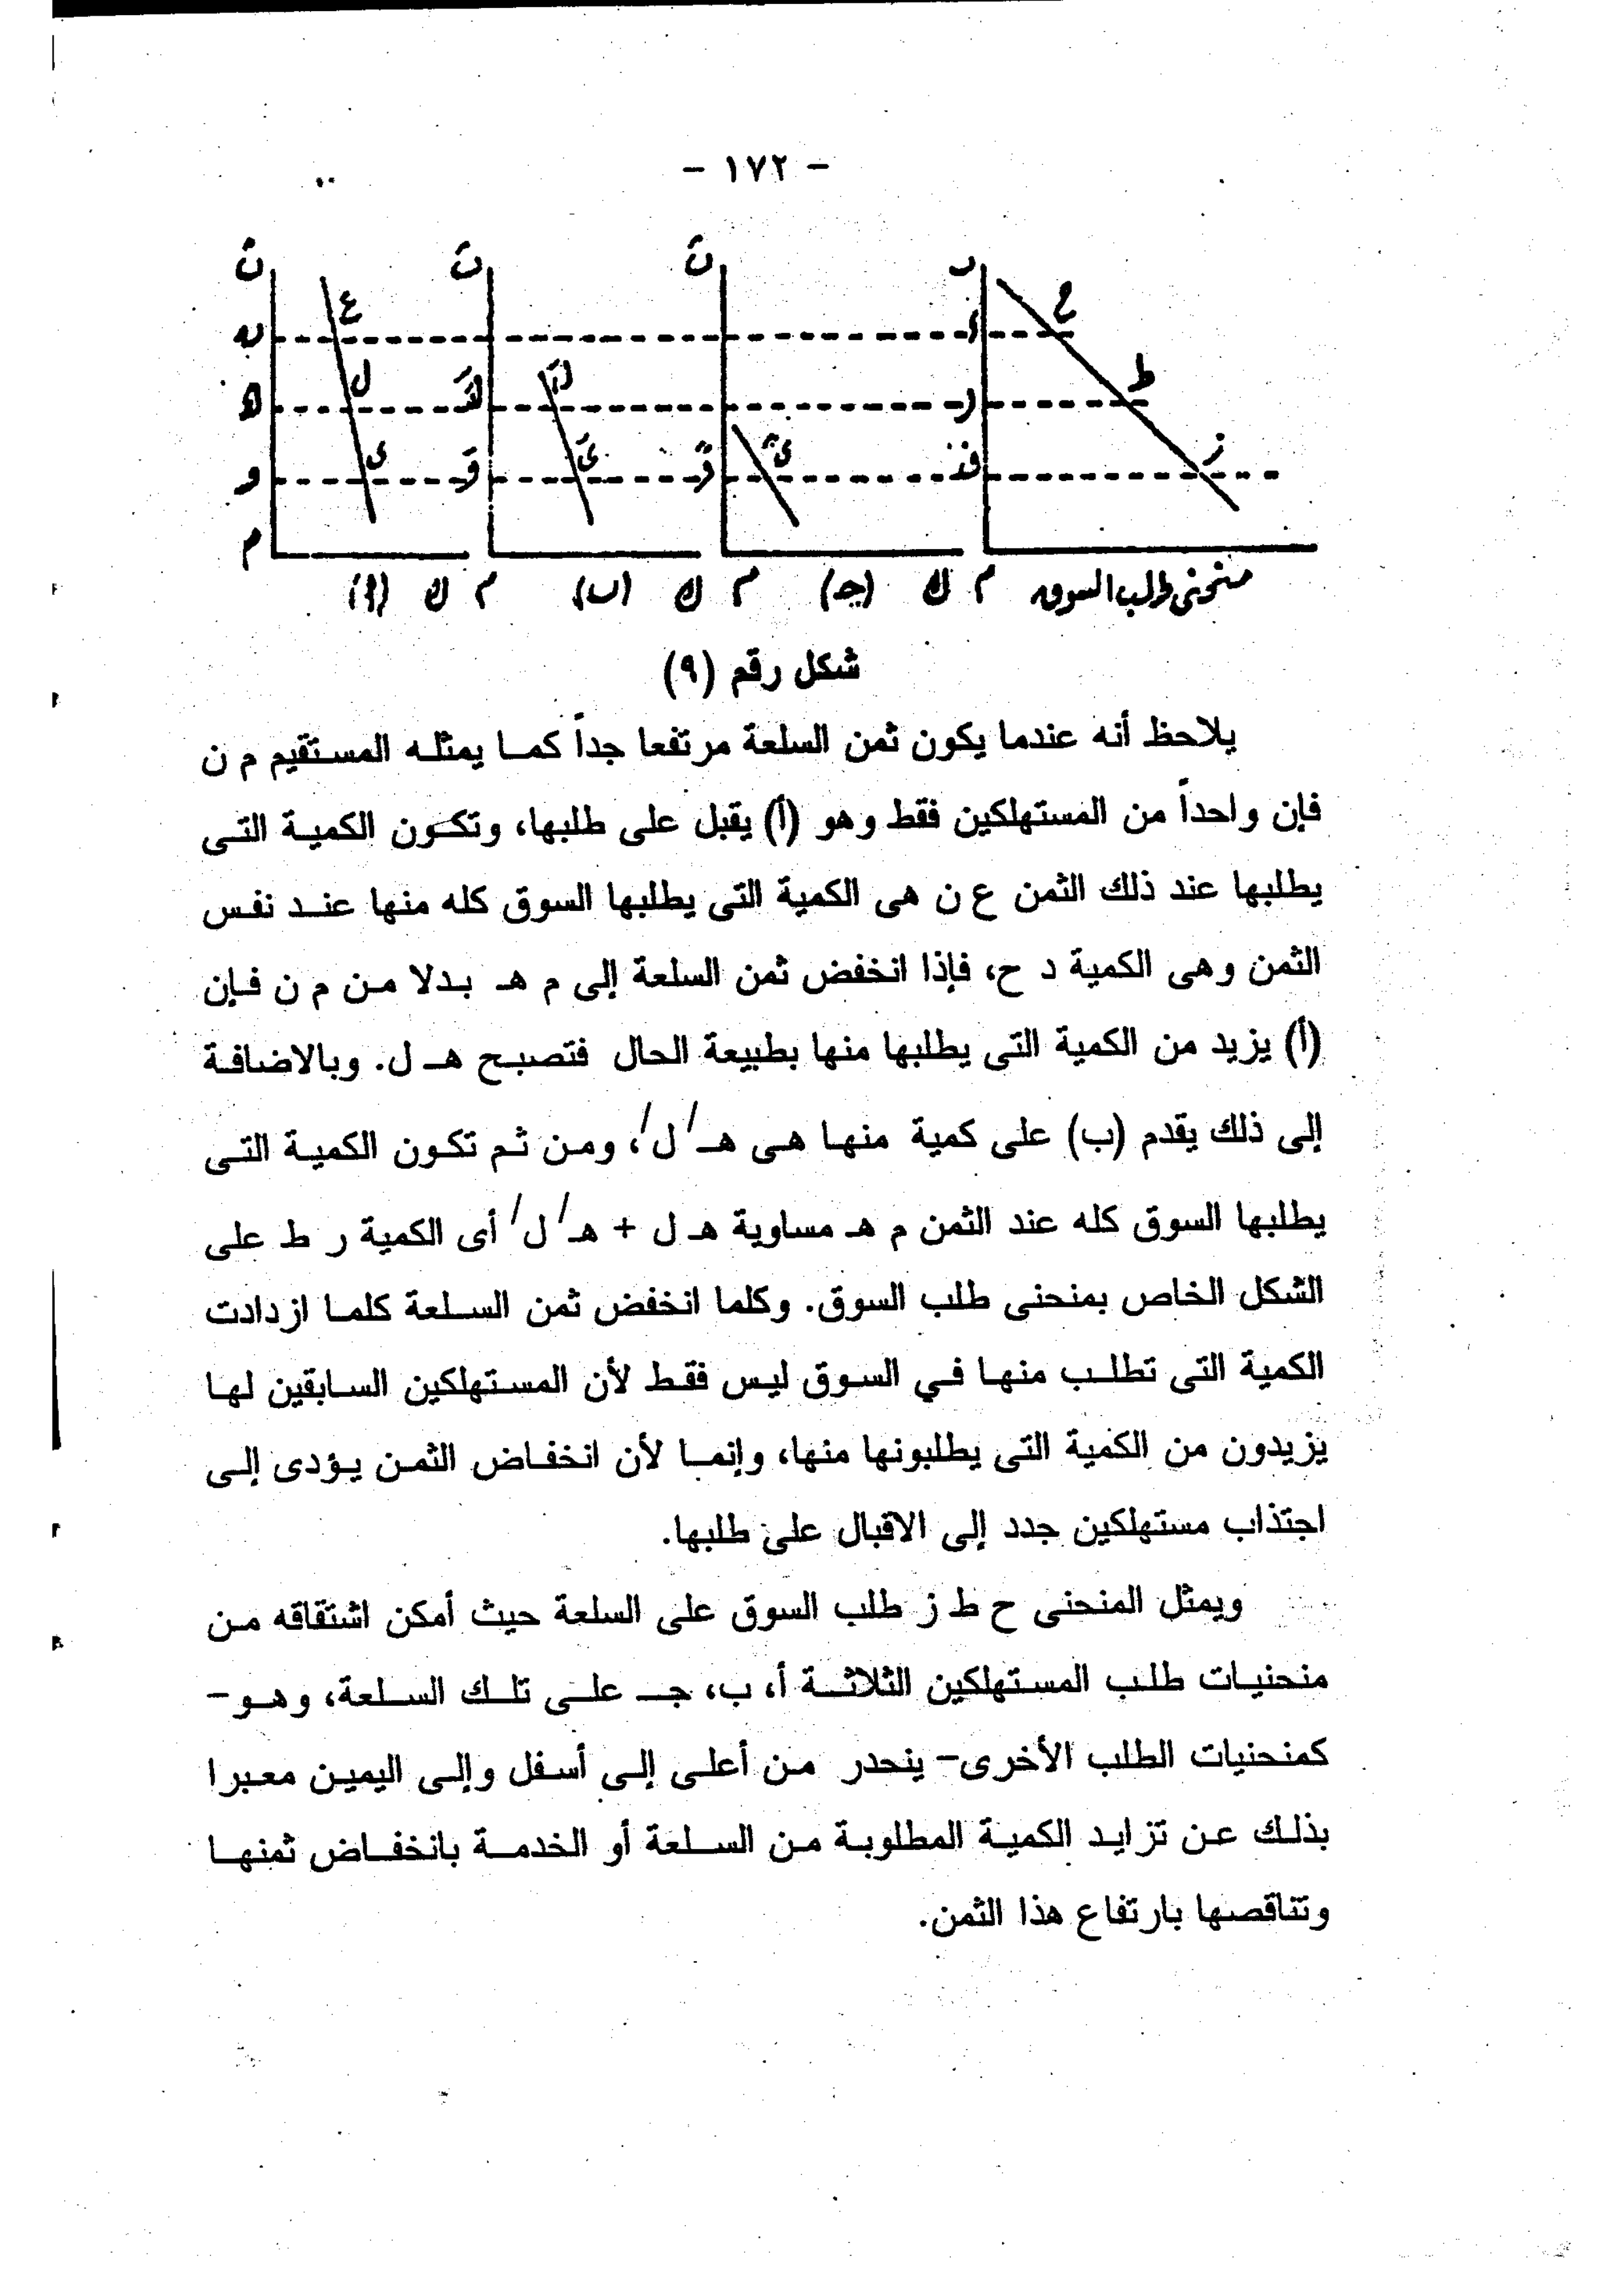 - ١٧٢ -
ثَ ثَ ثَ
ن ع ح
هـ ل ط
و ى وَ ىَ ز
م
(أ) ك م (ب) ك م (جـ) ك م منحنى طلب السوق
شكل رقم (٩)
يلاحظ أنه عندما يكون ثمن السلعة مرتفعا جداً كما يمثله المستقيم م ن
فإن واحداً من المستهلكين فقط وهو (أ) يقبل على طلبها، وتكون الكمية التى
يطلبها عند ذلك الثمن ع ن هى الكمية التى يطلبها السوق كله منها عند نفس
الثمن وهى الكمية د ح، فإذا انخفض ثمن السلعة إلى م هـ بدلا من م ن فإن
(أ) يزيد من الكمية التى يطلبها منها بطبيعة الحال فتصبح هـ ل. وبالاضافة
إلى ذلك يقدم (ب) على كمية منها هى هـ/ ل/، ومن ثم تكون الكمية التى
يطلبها السوق كله عند الثمن م هـ مساوية هـ ل + هـ/ ل/ أى الكمية ر ط على
الشكل الخاص بمنحنى طلب السوق. وكلما انخفض ثمن السلعة كلما ازدادت
الكمية التى تطلب منها في السوق ليس فقط لأن المستهلكين السابقين لها
يزيدون من الكمية التى يطلبونها منها، وإنما لأن انخفاض الثمن يؤدى إلى
اجتذاب مستهلكين جدد إلى الاقبال على طلبها.
ويمثل المنحنى ح ط ز طلب السوق على السلعة حيث أمكن اشتقاقه من
منحنيات طلب المستهلكين الثلاثة أ، ب، جـ على تلك السلعة، وهو-
كمنحنيات الطلب الأخرى- ينحدر من أعلى إلى أسفل وإلى اليمين معبرا
بذلك عن تزايد الكمية المطلوبة من السلعة أو الخدمة بانخفاض ثمنها
وتناقصها بارتفاع هذا الثمن.